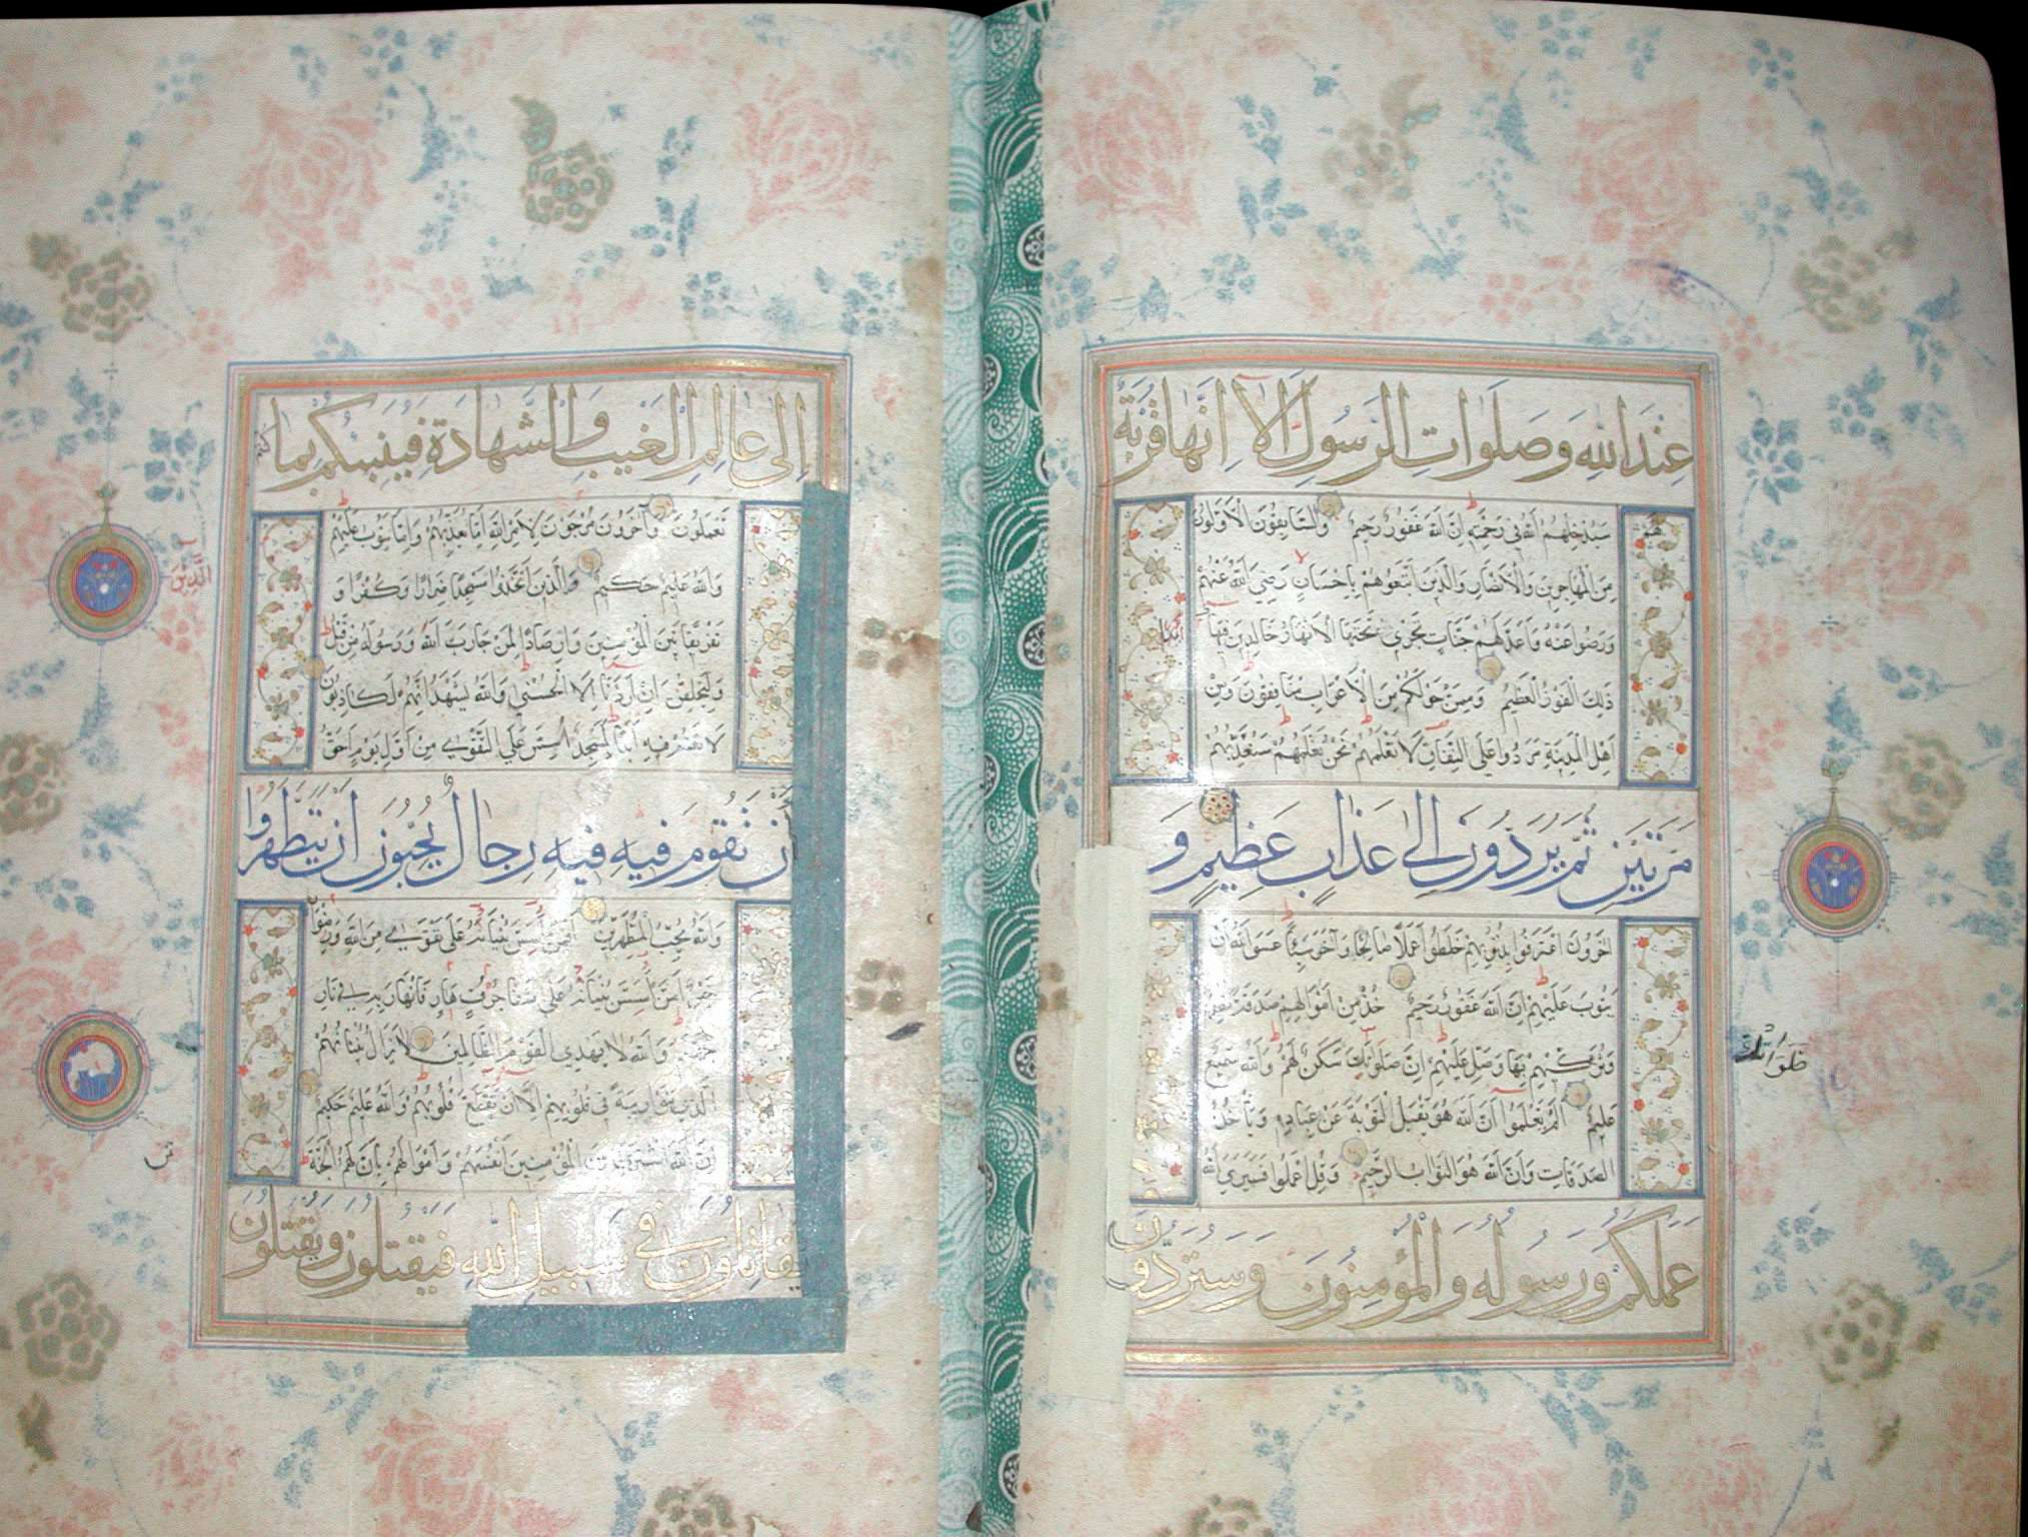 عِنْدَ اللّٰهِ وَصَلَوَاتِ الرَّسُولِ اَلَا اِنَّهَا قُرْبَةٌ
لَهُمْ سَيُدْخِلُهُمُ اللّٰهُ فِي رَحْمَتِهِ اِنَّ اللّٰهَ غَفُورٌ رَحِيمٌ وَالسَّابِقُونَ الْاَوَّلُونَ
مِنَ الْمُهَاجِرِينَ وَالْاَنْصَارِ وَالَّذِينَ اتَّبَعُوهُمْ بِاِحْسَانٍ رَضِيَ اللّٰهُ عَنْهُمْ
وَرَضُوا عَنْهُ وَاَعَدَّ لَهُمْ جَنَّاتٍ تَجْرِي تَحْتَهَا الْاَنْهَارُ خَالِدِينَ فِيهَا اَبَدًا
ذٰلِكَ الْفَوْزُ الْعَظِيمُ وَمِمَّنْ حَوْلَكُمْ مِنَ الْاَعْرَابِ مُنَافِقُونَ وَمِنْ
اَهْلِ الْمَدِينَةِ مَرَدُوا عَلَى النِّفَاقِ لَا تَعْلَمُهُمْ نَحْنُ نَعْلَمُهُمْ سَنُعَذِّبُهُمْ
مَرَّتَيْنِ ثُمَّ يُرَدُّونَ اِلٰى عَذَابٍ عَظِيمٍ وَ
اٰخَرُونَ اعْتَرَفُوا بِذُنُوبِهِمْ خَلَطُوا عَمَلًا صَالِحًا وَاٰخَرَ سَيِّئًا عَسَى اللّٰهُ اَنْ
يَتُوبَ عَلَيْهِمْ اِنَّ اللّٰهَ غَفُورٌ رَحِيمٌ خُذْ مِنْ اَمْوَالِهِمْ صَدَقَةً تُطَهِّرُهُمْ
وَتُزَكِّيهِمْ بِهَا وَصَلِّ عَلَيْهِمْ اِنَّ صَلَوٰتَكَ سَكَنٌ لَهُمْ وَاللّٰهُ سَمِيعٌ
عَلِيمٌ اَلَمْ يَعْلَمُوا اَنَّ اللّٰهَ هُوَ يَقْبَلُ التَّوْبَةَ عَنْ عِبَادِهِ وَيَاْخُذُ
الصَّدَقَاتِ وَاَنَّ اللّٰهَ هُوَ التَّوَّابُ الرَّحِيمُ وَقُلِ اعْمَلُوا فَسَيَرَى اللّٰهُ
عَمَلَكُمْ وَرَسُولُهُ وَالْمُؤْمِنُونَ وَسَتُرَدُّونَ
اِلٰى عَالِمِ الْغَيْبِ وَالشَّهَادَةِ فَيُنَبِّئُكُمْ بِمَا كُنْتُمْ
تَعْمَلُونَ وَاٰخَرُونَ مُرْجَوْنَ لِاَمْرِ اللّٰهِ اِمَّا يُعَذِّبُهُمْ وَاِمَّا يَتُوبُ عَلَيْهِمْ
وَاللّٰهُ عَلِيمٌ حَكِيمٌ وَالَّذِينَ اتَّخَذُوا مَسْجِدًا ضِرَارًا وَكُفْرًا وَ
تَفْرِيقًا بَيْنَ الْمُؤْمِنِينَ وَاِرْصَادًا لِمَنْ حَارَبَ اللّٰهَ وَرَسُولَهُ مِنْ قَبْلُ
وَلَيَحْلِفُنَّ اِنْ اَرَدْنَا اِلَّا الْحُسْنٰى وَاللّٰهُ يَشْهَدُ اِنَّهُمْ لَكَاذِبُونَ
لَا تَقُمْ فِيهِ اَبَدًا لَمَسْجِدٌ اُسِّسَ عَلَى التَّقْوٰى مِنْ اَوَّلِ يَوْمٍ اَحَقُّ
اَنْ تَقُومَ فِيهِ فِيهِ رِجَالٌ يُحِبُّونَ اَنْ يَتَطَهَّرُوا
وَاللّٰهُ يُحِبُّ الْمُطَّهِّرِينَ اَفَمَنْ اَسَّسَ بُنْيَانَهُ عَلٰى تَقْوٰى مِنَ اللّٰهِ وَرِضْوَانٍ
خَيْرٌ اَمْ مَنْ اَسَّسَ بُنْيَانَهُ عَلٰى شَفَا جُرُفٍ هَارٍ فَانْهَارَ بِهِ فِي نَارِ
جَهَنَّمَ وَاللّٰهُ لَا يَهْدِي الْقَوْمَ الظَّالِمِينَ لَا يَزَالُ بُنْيَانُهُمُ
الَّذِي بَنَوْا رِيبَةً فِي قُلُوبِهِمْ اِلَّا اَنْ تَقَطَّعَ قُلُوبُهُمْ وَاللّٰهُ عَلِيمٌ حَكِيمٌ
اِنَّ اللّٰهَ اشْتَرٰى مِنَ الْمُؤْمِنِينَ اَنْفُسَهُمْ وَاَمْوَالَهُمْ بِاَنَّ لَهُمُ الْجَنَّةَ
يُقَاتِلُونَ فِي سَبِيلِ اللّٰهِ فَيَقْتُلُونَ وَيُقْتَلُونَ
الَّذِينَ